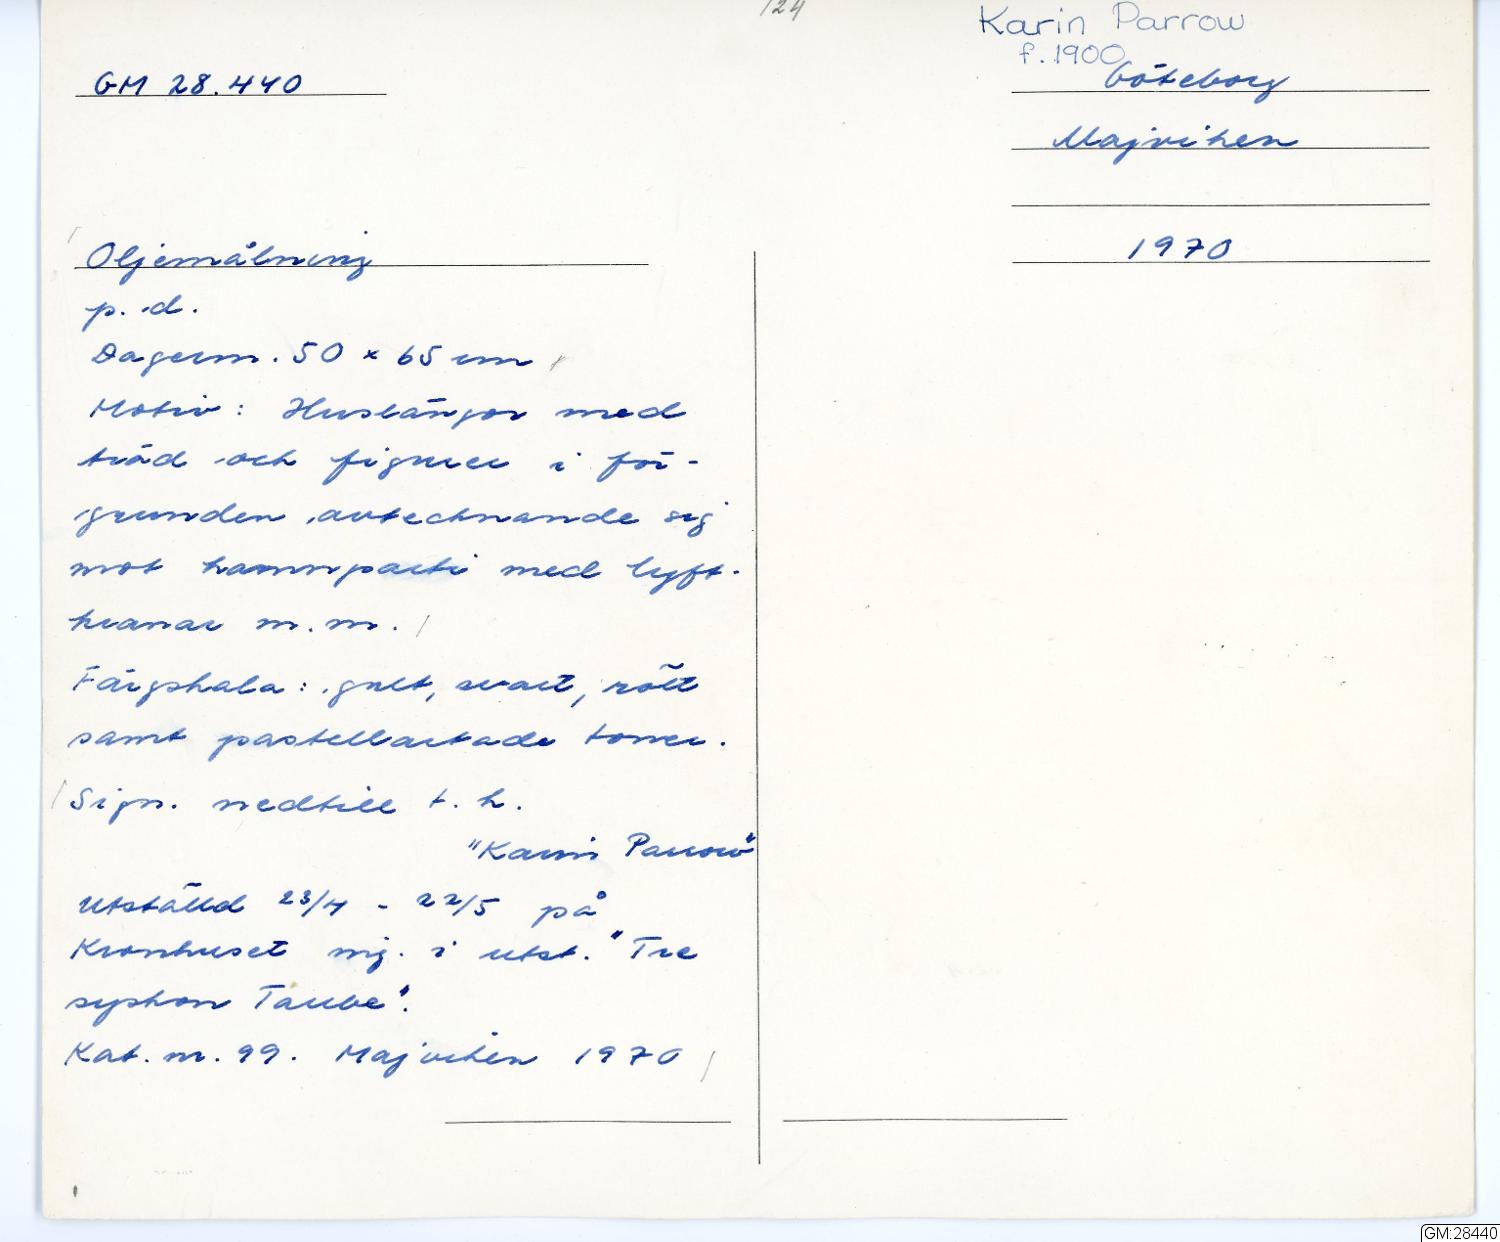 124
Karin Parrow
f. 1900
GM 28.440
Göteborg
Majviken
1970
Oljemålning
p. d.
Dagerm. 50 x 65 cm
Motiv: Huslängor med
träd och figurer i för-
grunden avtecknande sig
mot hamnparti med lyft-
kranar m.m.
Färgskala: gult, svart, rött
samt pastellartade toner.
Sign. nedtill t. h.
"Karin Parrow"
Utställd 23/4 - 22/5 på
Kronhuset i utst. "Tre
syskon Taube".
Kat. nr. 99. Majviken 1970
GM:28440